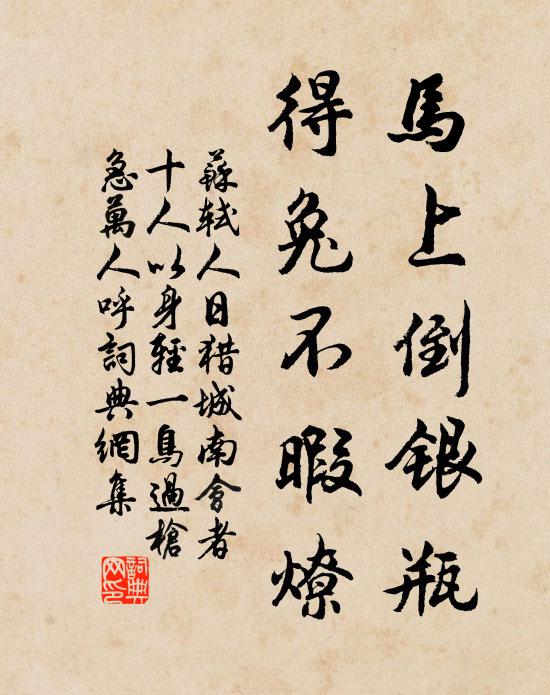 馬上倒銀瓶
得兔不暇燎
蘇轼人日猎城南會者
十人以身輕一鳥過槍
急萬人呼詞典網集
詞典网印